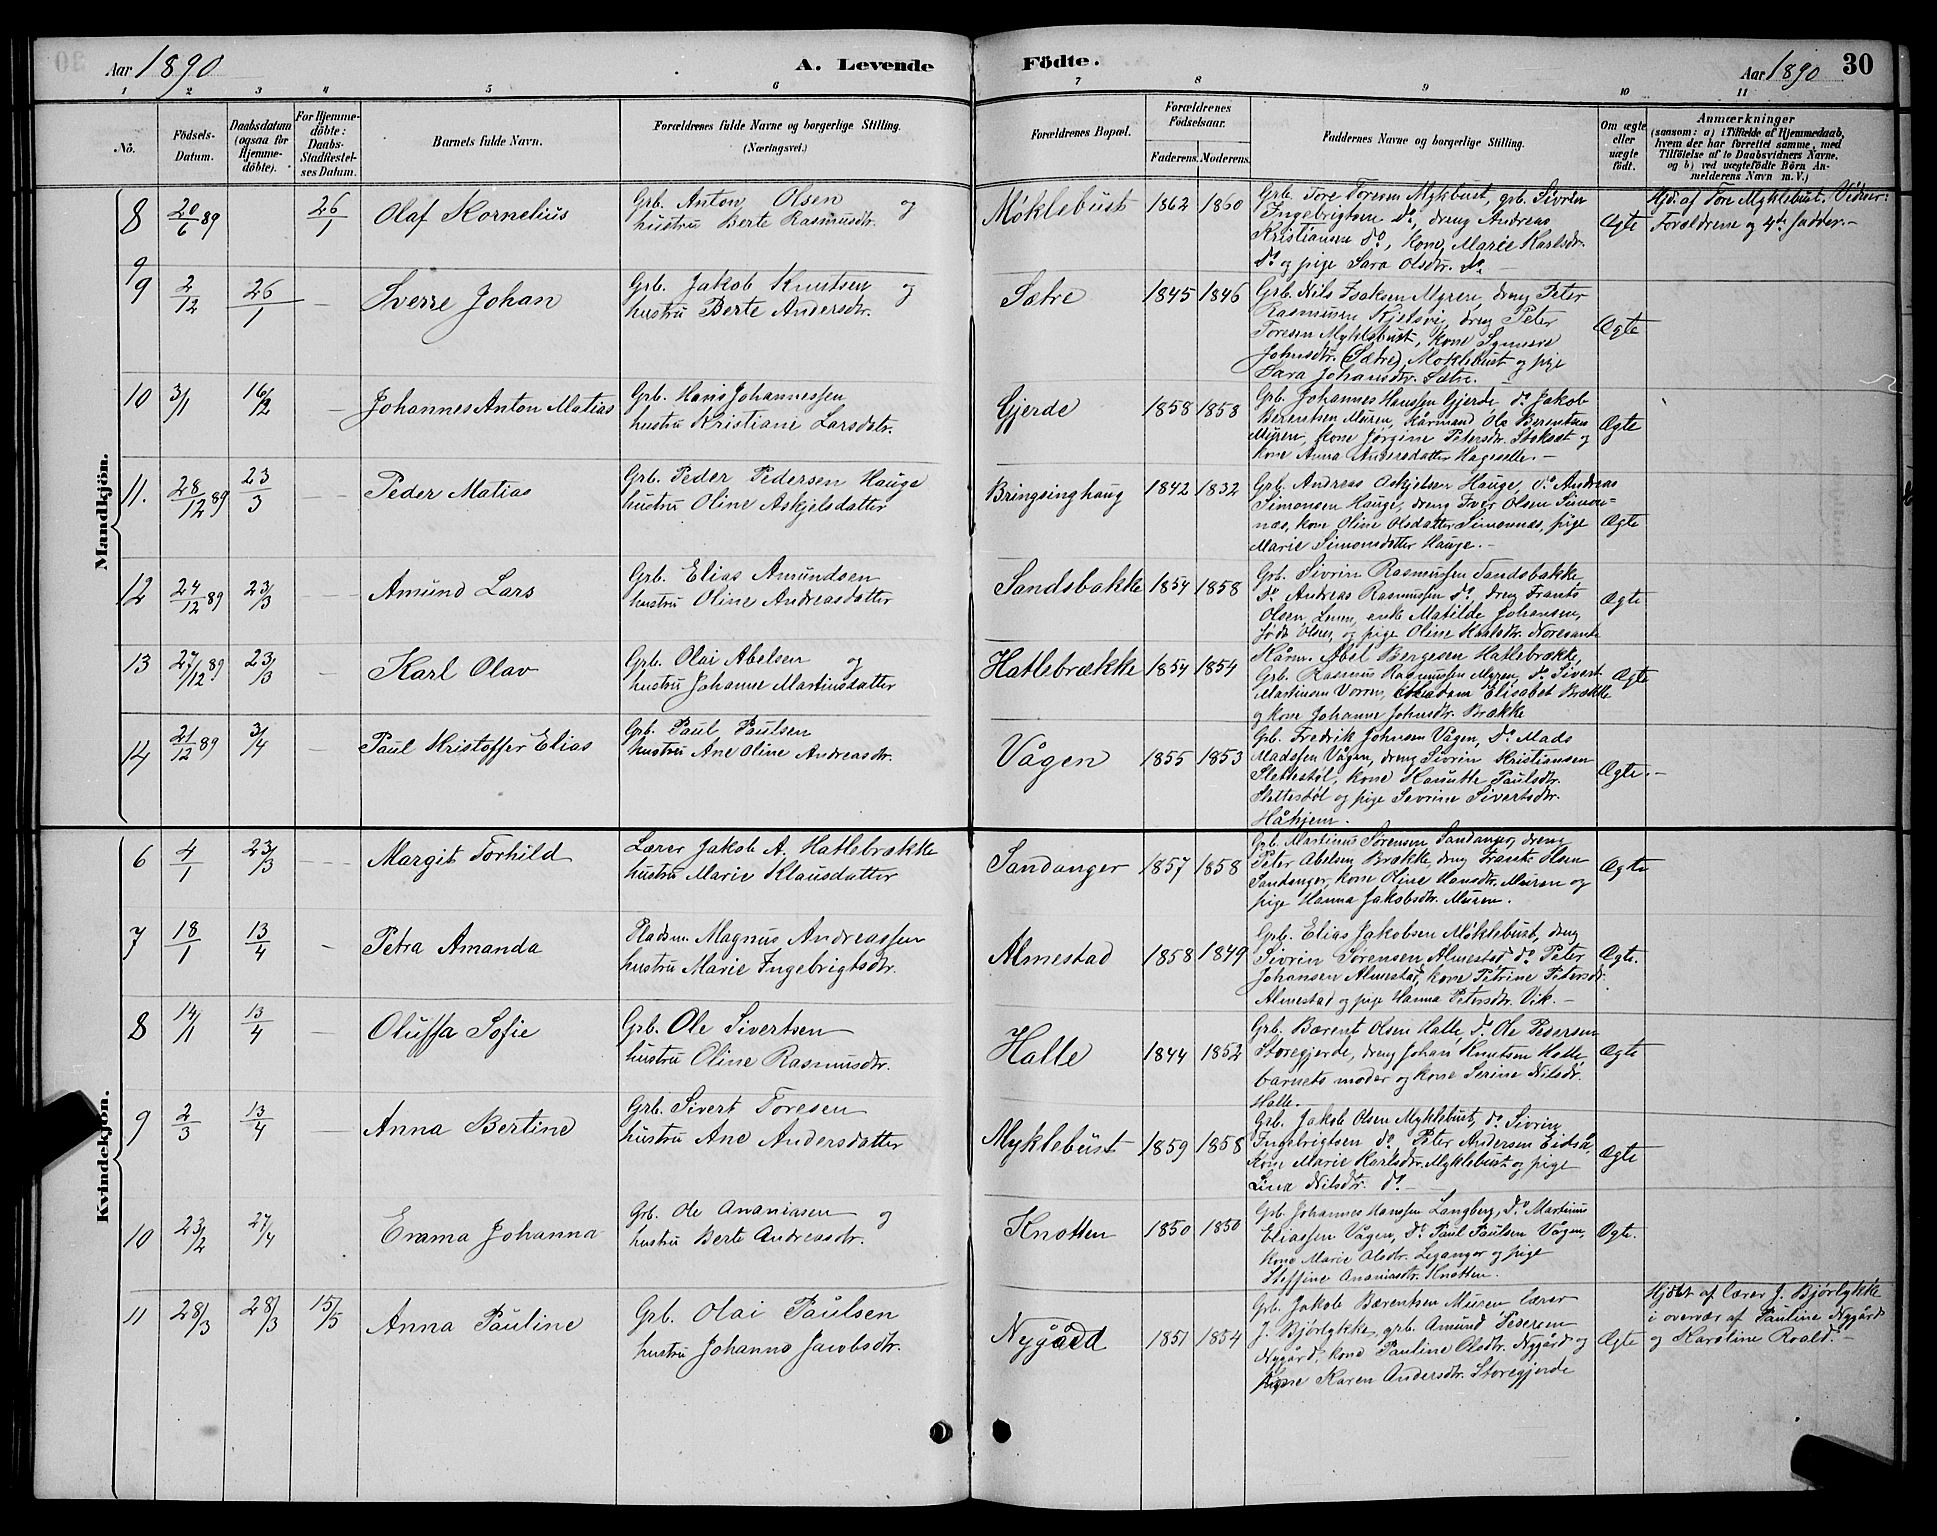 Aar 1890
A. Levende
Födte.
Aar 1890
30
1 2 3 4 5 6 7 8 9 10 11
No.
Födsels-Datum.
Daabsdatum (ogsaa for Hjemme-döbte).
For Hjemme-döbte: Daabs-Stadfæstel-ses Datum.
Barnets fulde Navn.
Forældrenes fulde Navne og borgerlige Stilling. (Næringsvei.)
Forældrenes Bopæl.
Forældrenes Födselsaar.
Faderens. Moderens.
Faddernes Navne og borgerlige Stilling.
Om ægte eller uægte födt.
Anmærkninger
(saasom: a) i Tilfælde af Hjemmedaab,
hvem der har forrettet samme, med
Tilföielse af to Daabsvidners Navne,
og b) ved uægtefödte Börn An-
melderens Navn m. V.)
Mandkjön.
8 20/6 89 26/1 Olaf Kornelius
Grb. Anton Olsen og
hustru Berte Rasmusdtr.
Møklebust 1862 1860
Grb. Tore Toresen Myklbust, grb. Sivrin
Ingebrigtsen do, dreng Andreas
Kristiansen do, kone Marie Karlsdr.
do og pige Sara Olsdtr. do.
Ægte
Hjd. af Tore Myklebust. Vidner:
Forældrene og 4de fadder.
9
9 2/12 26/1 — Sverre Johan
Grb. Jakob Knutsen og
hustru Berte Andersdtr.
Sætre 1845 1846
Grb. Nils Isaksen Myren, dreng Peter
Rasmussen Kjelsvi, dreng Peter
Toresen Myklebust, kone Synnøve
Johnsdtr. (Sætre) Moklebust og pige
Sara Johansdtr. Sætre.
Ægte
10 3/1 16/2 — Johannes Anton Matias
Grb. Hans Johannessen
hustru Kristiane Larsdatr.
Gjerde 1858 1858
Grb. Johannes Hanssen Gjerde do Jakob
Berentsen Muren, Kårmand Ole Berentsen
Muren, kone Jørgine Petersdtr. Stokset og
kone Anna Andersdatter Hageselle.
Ægte
11. 28/12 89 23/3 Peder Matias
Grb. Peder Pedersen Hauge
hustru Oline Askjelsdatter
Bringsinghaug 1842 1832
Grb. Andreas Askjelsen Hauge, do Andreas
Simonsen Hauge, dreng Iver Olsen Simon-
næs, kone Oline Olsdatter Simonnæs, pige
Marie Simonsdatter Hauge.
Ægte
12 24/12 89 23/3 Amund Lars
Grb. Elias Amundsen
hustru Oline Andreasdatter
Sandsbakke 1854 1858
Grb. Sivrin Rasmussen Sandsbakke,
do Andreas Rasmussen do, dreng Frants
Olsen, Lemen, enke Matilde Johansen,
født Olsen, og pige Oline Karlsdtr. Noresande
Ægte
13 27/12 89 23/3 — Karl Olav
Grb. Olai Abelsen og
hustru Johanne Martinusdatter
Hatlebrække 1854 1854
Kårm. Abel Bergesen Hatlebrække,
Grb. Rasmus Rasmussen Myren, do Sivert
Martinsen Voren, Madam Elisabet Brække
og kone Johanne Johnsdtr. Brække
Ægte
14 21/12 89 3/4 — Paul Kristoffer Elias
Grb. Paul Paulsen
hustru Ane Oline Andreasdtr.
Vågen 1855 1853
Grb. Fredrik Johnsen Vågen, do Mads
Madssen Vågen, dreng Sivrin Kristiansen
Slettestøl, kone Paulsdtr.
Slettestøl og pige Sevrine Sivertsdtr.
Håhjem.
Ægte.
Kvindekjön.
6 4/1 23/3 Margit Torhild
Lærer Jakob A. Hatlebrække
hustru Marie Klausdatter
Sandanger 1857 1858
Grb. Martinus Sørensen Sandanger, dreng
Peter Abelsen Brække, dreng Frants Olsen
Sandanger, kone Oline Hansdtr. Muren og
pige Hanna Jakobsdtr. Muren.
Ægte
7 18/1 13/4 - Petra Amanda
Pladsm. Magnus Andreassen
hustru Marie Ingebrigtsdtr.
Almestad 1858 1849
Grb. Elias Jakobsen Møklebust, dreng
Sivrin Sørensen Almestad do Peter
Johansen Almestad, kone Petrine Petersdr.
Almestad og pige Hanna Petersdtr. Vik.
Ægte.
8 14/1 13/4 — Oluffa Sofie
Grb. Ole Sivertsen
hustru Oline Rasmusdtr.
Halle 1844 1852
Grb. Bærent Olsen Halle, do. Ole Pedersen
Storegjerde, dreng Johan Knutsen Halle
barnets moder og kone Serine Nilsdr.
Halle.
Ægte
9 2/3 13/4 Anna Bertine
Grb. Sivert Toresen
hustru Ane Andersdatter
Myklebust 1859 1858
Grb. Jakob Olsen Myklebust, do Sivrin
Ingebrigtsen do Peter Andersen Eidså,
kone Marie Karlsdtr. Myklebust og pige
Lina Nilsdtr. do
Ægte
10 23/2 27/4 Emma Johanna
Grb. Ole Ananiasen og
hustru Berte Andreasdtr.
Knotten 1850 1850
Grb. Johannes Hanssen Langberg, do Martinus
Eliassen Vågen, do Paul Paulsen Vågen,
kone Marie Olsdtr. Leganger og pige
Steffine Ananiasdtr. Knotten.
Ægte.
11 28/3 28/3 15/5 Anna Pauline
Grb. Olai Paulsen
hustru Johanne Jacobsdtr.
Nygård 1851 1854
Grb. Jakob Bærentsen Muren lærer
J. Bjørlykke, grb. Amund Pedersen
Nygård, kone Pauline Olsdtr. Nygård og
kone Karen Andersdtr. Storegjerde
Ægte
Hjdøbt af lærer J. Bjørlykke
i overvær af Pauline Nygård
og Karoline Roald.